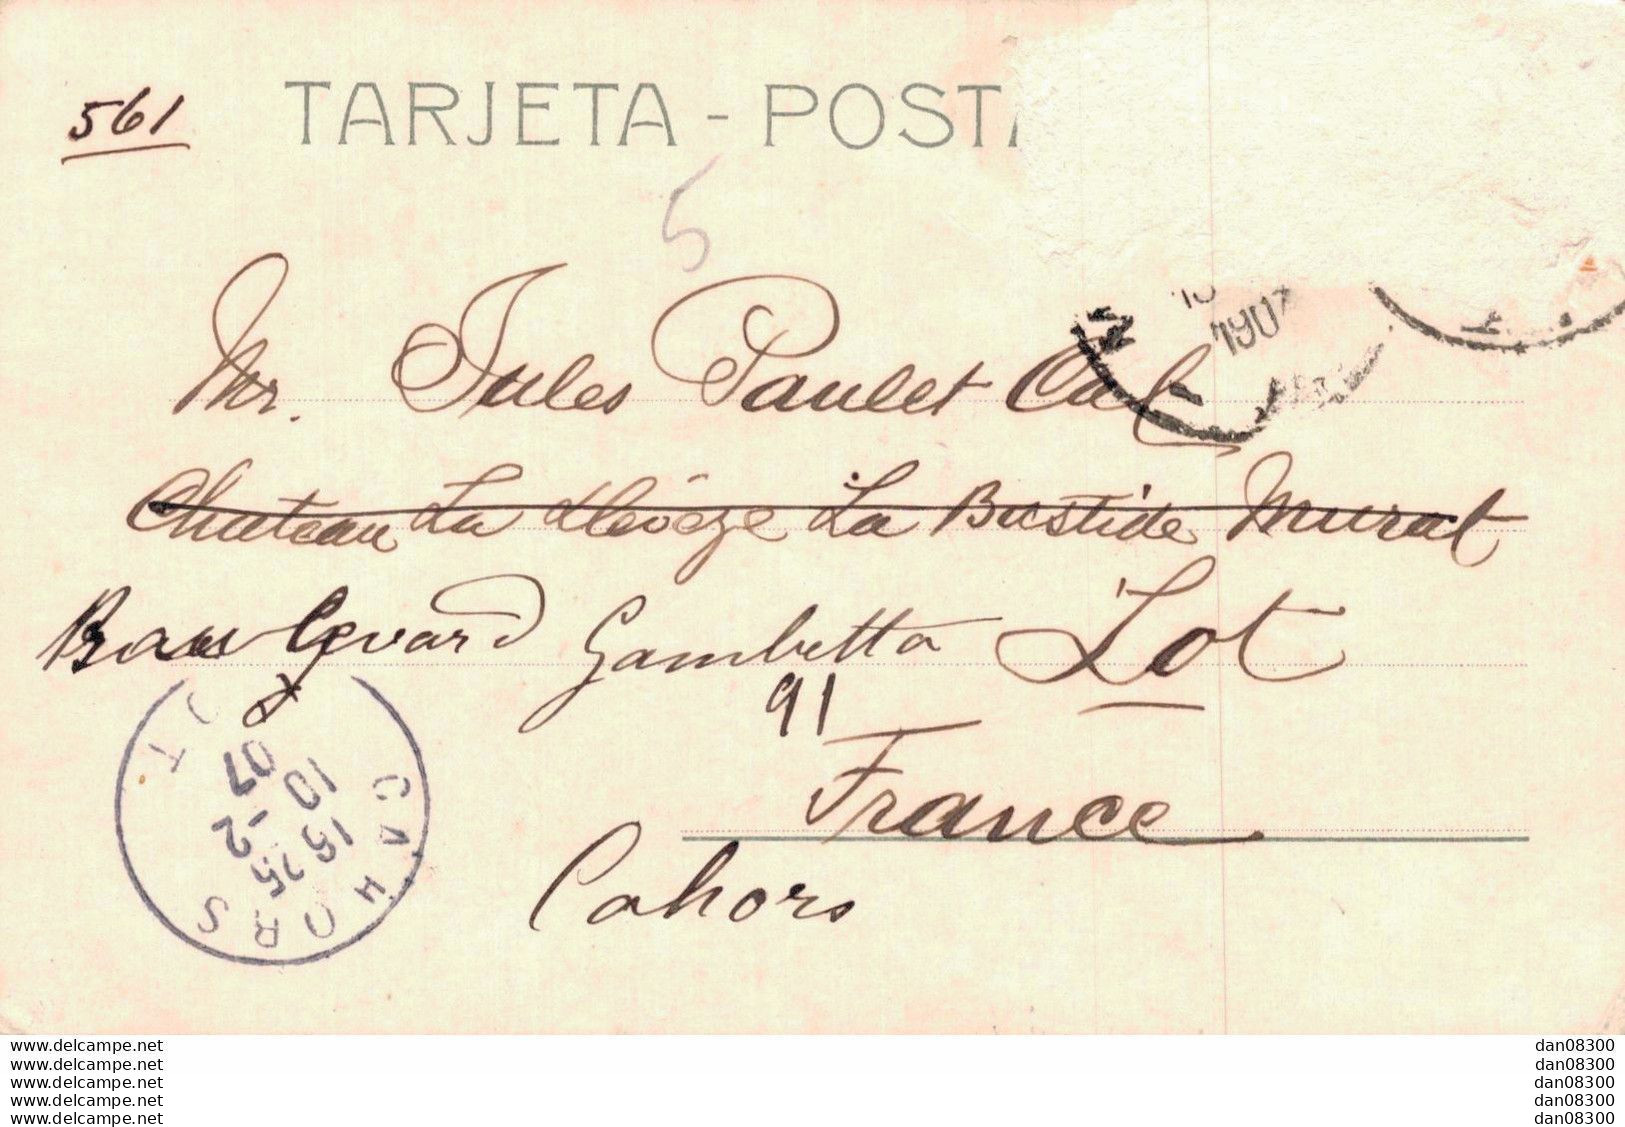 561
TARJETA - POSTA
5
Mr. Jules Paulet Cal
Chateau La La Bastide Murat
Gambetta Lot
91
France
Cahors
1907
CAHORS
LOT
15 25
10 - 2
07
www.delcampe.net dan08300
www.delcampe.net dan08300
www.delcampe.net dan08300
www.delcampe.net dan08300
www.delcampe.net dan08300